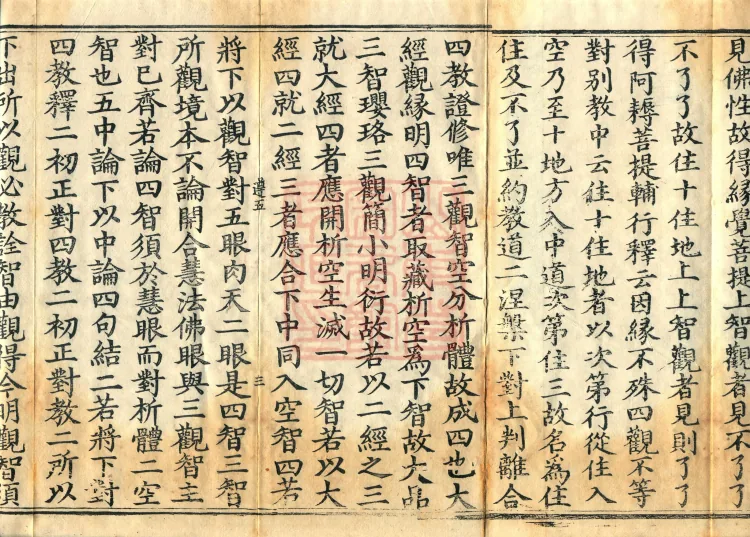 見佛性故得緣覺菩提上智觀者見不了了
不了了故住十住地上上智觀者見則了了
得阿耨菩提輔行釋云因緣不殊四觀不等
對別教中云住十住地者以次第行從住入
空乃至十地方入中道次第住三故名為住
住及不了並約教道二涅槃下對上判離合
四教證修唯三觀智空分析體故成四也大
經觀緣明四智者取藏析空為下智故大品
三智瓔珞三觀簡小明衍故若以二經之三
就大經四者應開析空生滅一切智若以大
經四就二經三者應合下中同入空智四若
遵五 三
將下以觀智對五眼肉天二眼是四智三智
所觀境本不論開合慧法佛眼與三觀智主
對已齊若論四智須於慧眼而對析體二空
智也五中論下以中論四句結二若將下對
四教釋二初正對四教二初正對教二所以
下出所以觀必教詮智由觀得今明觀智須